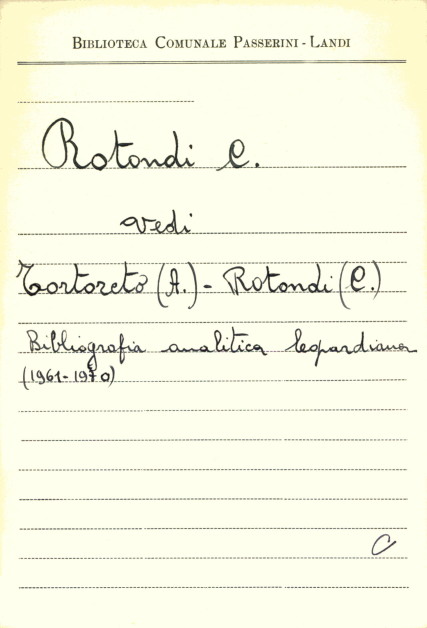 BIBLIOTECA COMUNALE PASSERINI - LANDI
Rotondi C.
vedi
Tortoreto (A.) - Rotondi (C.)
Bibliografia analitica leopardiana
(1961-1970)
C